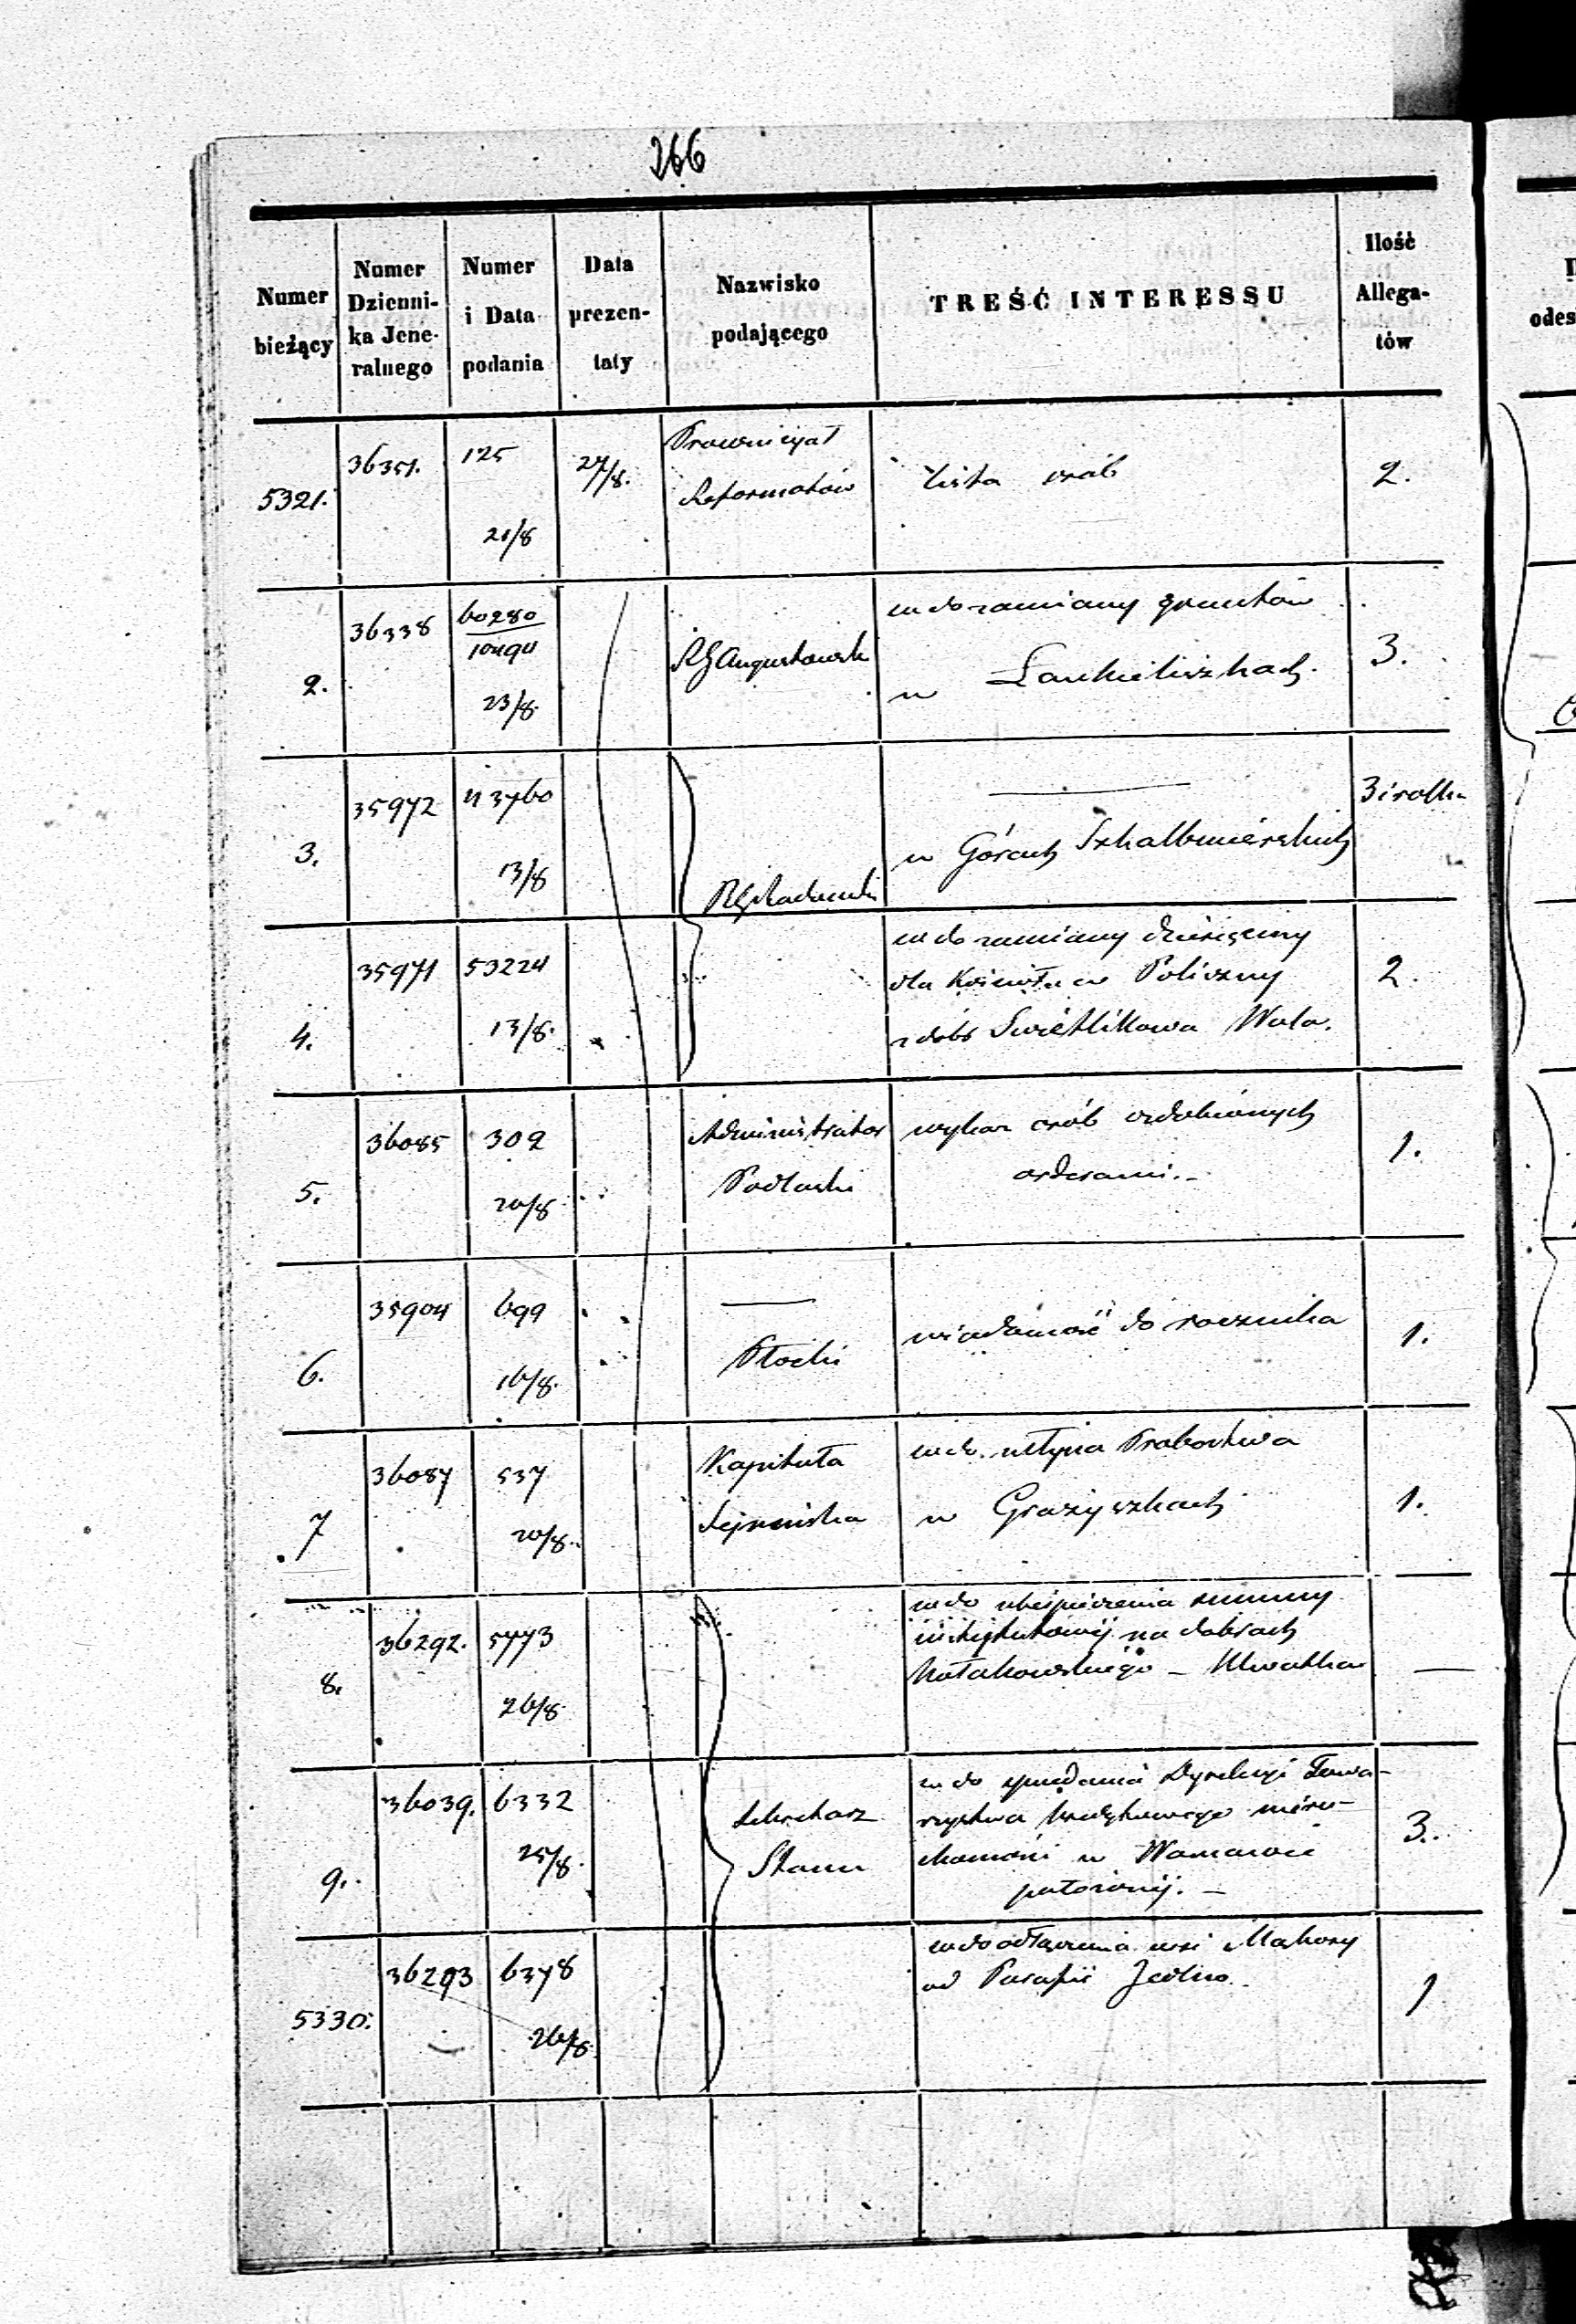 266
Numer bieżący
Numer Dzienni-ka Jene-ralnego
Numer i Data podania
Data prezen-taty
Nazwisko podającego
TREŚĆ INTERESSU
Ilość Allega-tów
5321. 36351. 125 21/8 27/8. Prowincyał Reformatów lista osób 2.
2. 36338 60280 23/8. RG Augustowski wdo zamiany gruntów
w Lankieliszkach. 3.
3. 35972 13/8 RG Radomski
w Górach Szkalbmierskich 3 i rolka
4. 35971 53224 13/8. wdo zamiany dziesięciny
dla Kościoła w Policzny
z dóbr Swietlikowa Wola. 2.
5. 36085 309 20/8 Administrator Podlaski wykaz osób ozdobionych
orderami. - 1.
6. 35904 699 16/8. — Płocki wiadomość do rocznika 1.
7 36087 537 20/8. Kapituła Sejneńska wdo. młyna Probostwa
w Grażyszkach 1.
8. 36292. 5773 26/8. wdo ubezpieczenia summy
instytutowej na dobrach
—
9. 36039. 6332 25/8. Sekretarz Stanu Dyrekcyi Towa-
rzystwa Kredytowego nieru-
chomości w Warszawie
położonej. - 3.
5330. 36293 6378 26/8. wdo odłączenia wsi Mąkosy
od Parafii Jedlno. 1
odes